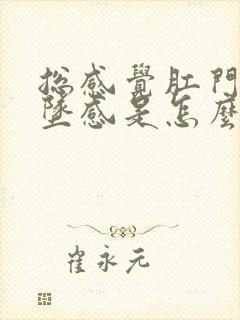 总感覺肛門
墜感是怎麼
崔永元